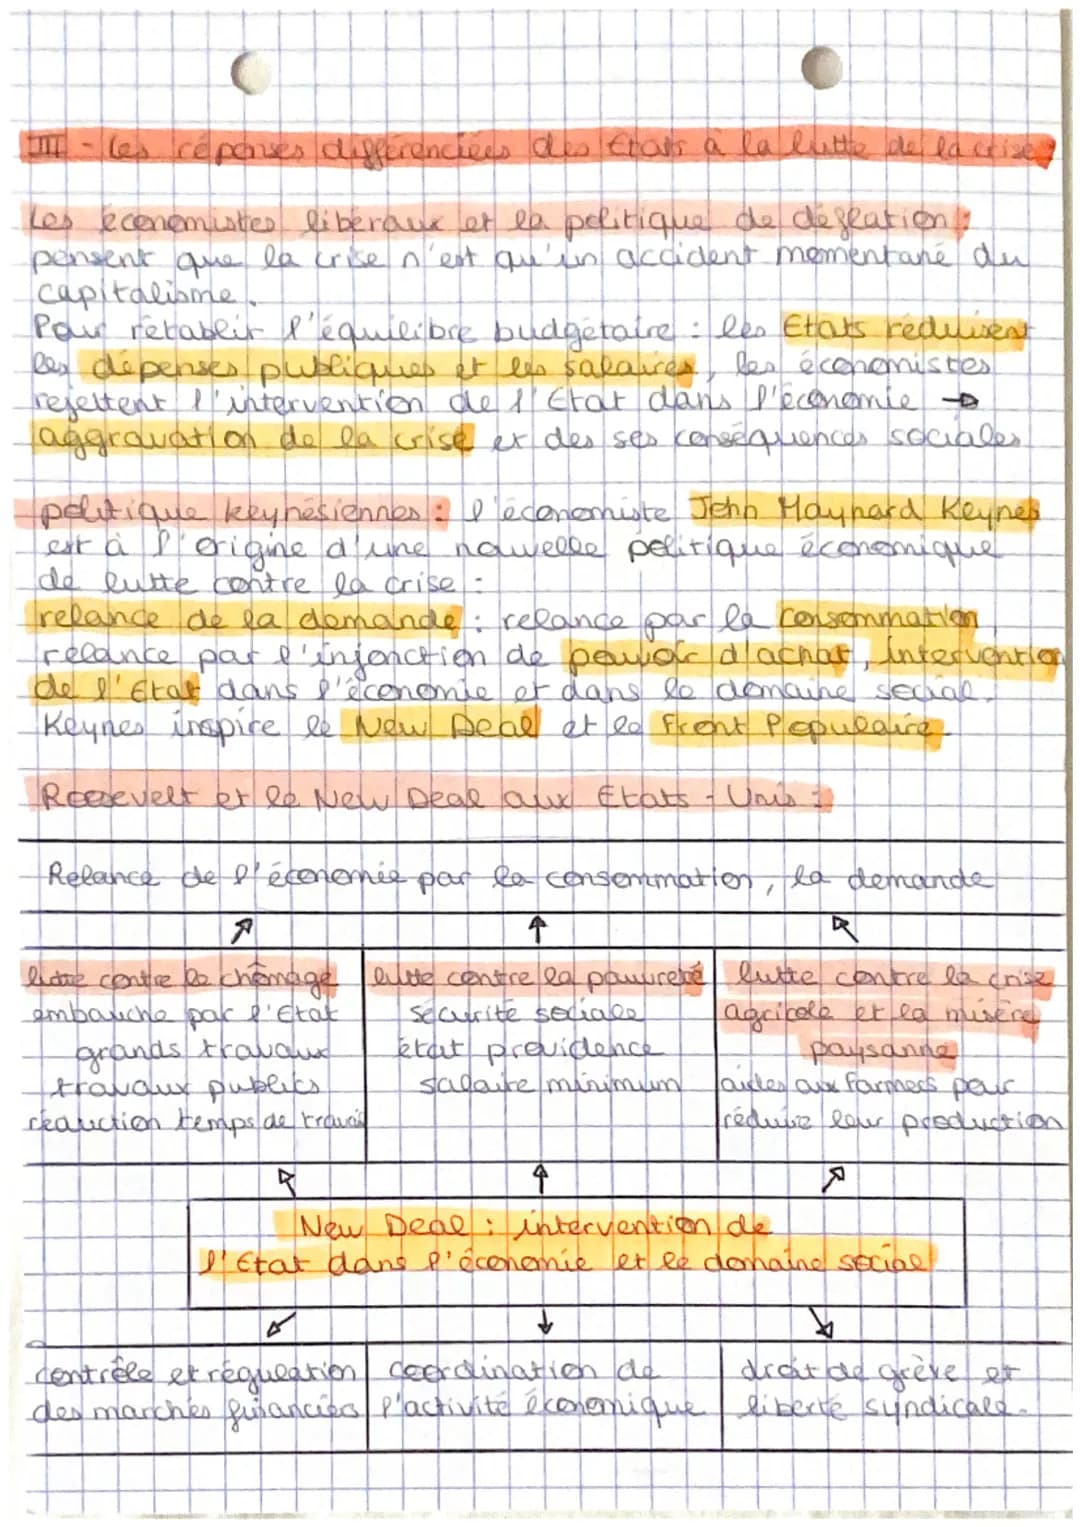 III - Les réponses différenciées des Etats à la lutte de la crise
Les économistes libéraux et la politique de déflation :
pensent que la crise n'est qu'un accident momentané du
capitalisme.
Pour rétablir l'équilibre budgétaire : les Etats réduisent
les dépenses publiques et les salaires, les économistes
rejettent l'intervention de l'Etat dans l'économie →
aggravation de la crise et des ses conséquences sociales
politique keynésiennes : l'économiste John Maynard Keynes
est à l'origine d'une nouvelle politique économique
de lutte contre la crise :
relance de la demande : relance par la consommation,
relance par l'injonction de pouvoir d'achat, intervention
de l'Etat dans l'économie et dans le domaine social.
Keynes inspire le New Deal et le Front Populaire.
Roosevelt et le New Deal aux Etats-Unis :
Relance de l'économie par la consommation, la demande
lutte contre le chômage
embauche par l'Etat
grands travaux
travaux publics
réduction temps de travail
lutte contre la pauvreté
sécurité sociale
état providence
salaire minimum
lutte contre la crise
agricole et la misère
paysanne
aides aux farmers pour
réduire leur production
New Deal : intervention de
l'Etat dans l'économie et le domaine social
contrôle et régulation
des marchés financiers
coordination de
l'activité économique
droit de grève et
liberté syndicale.